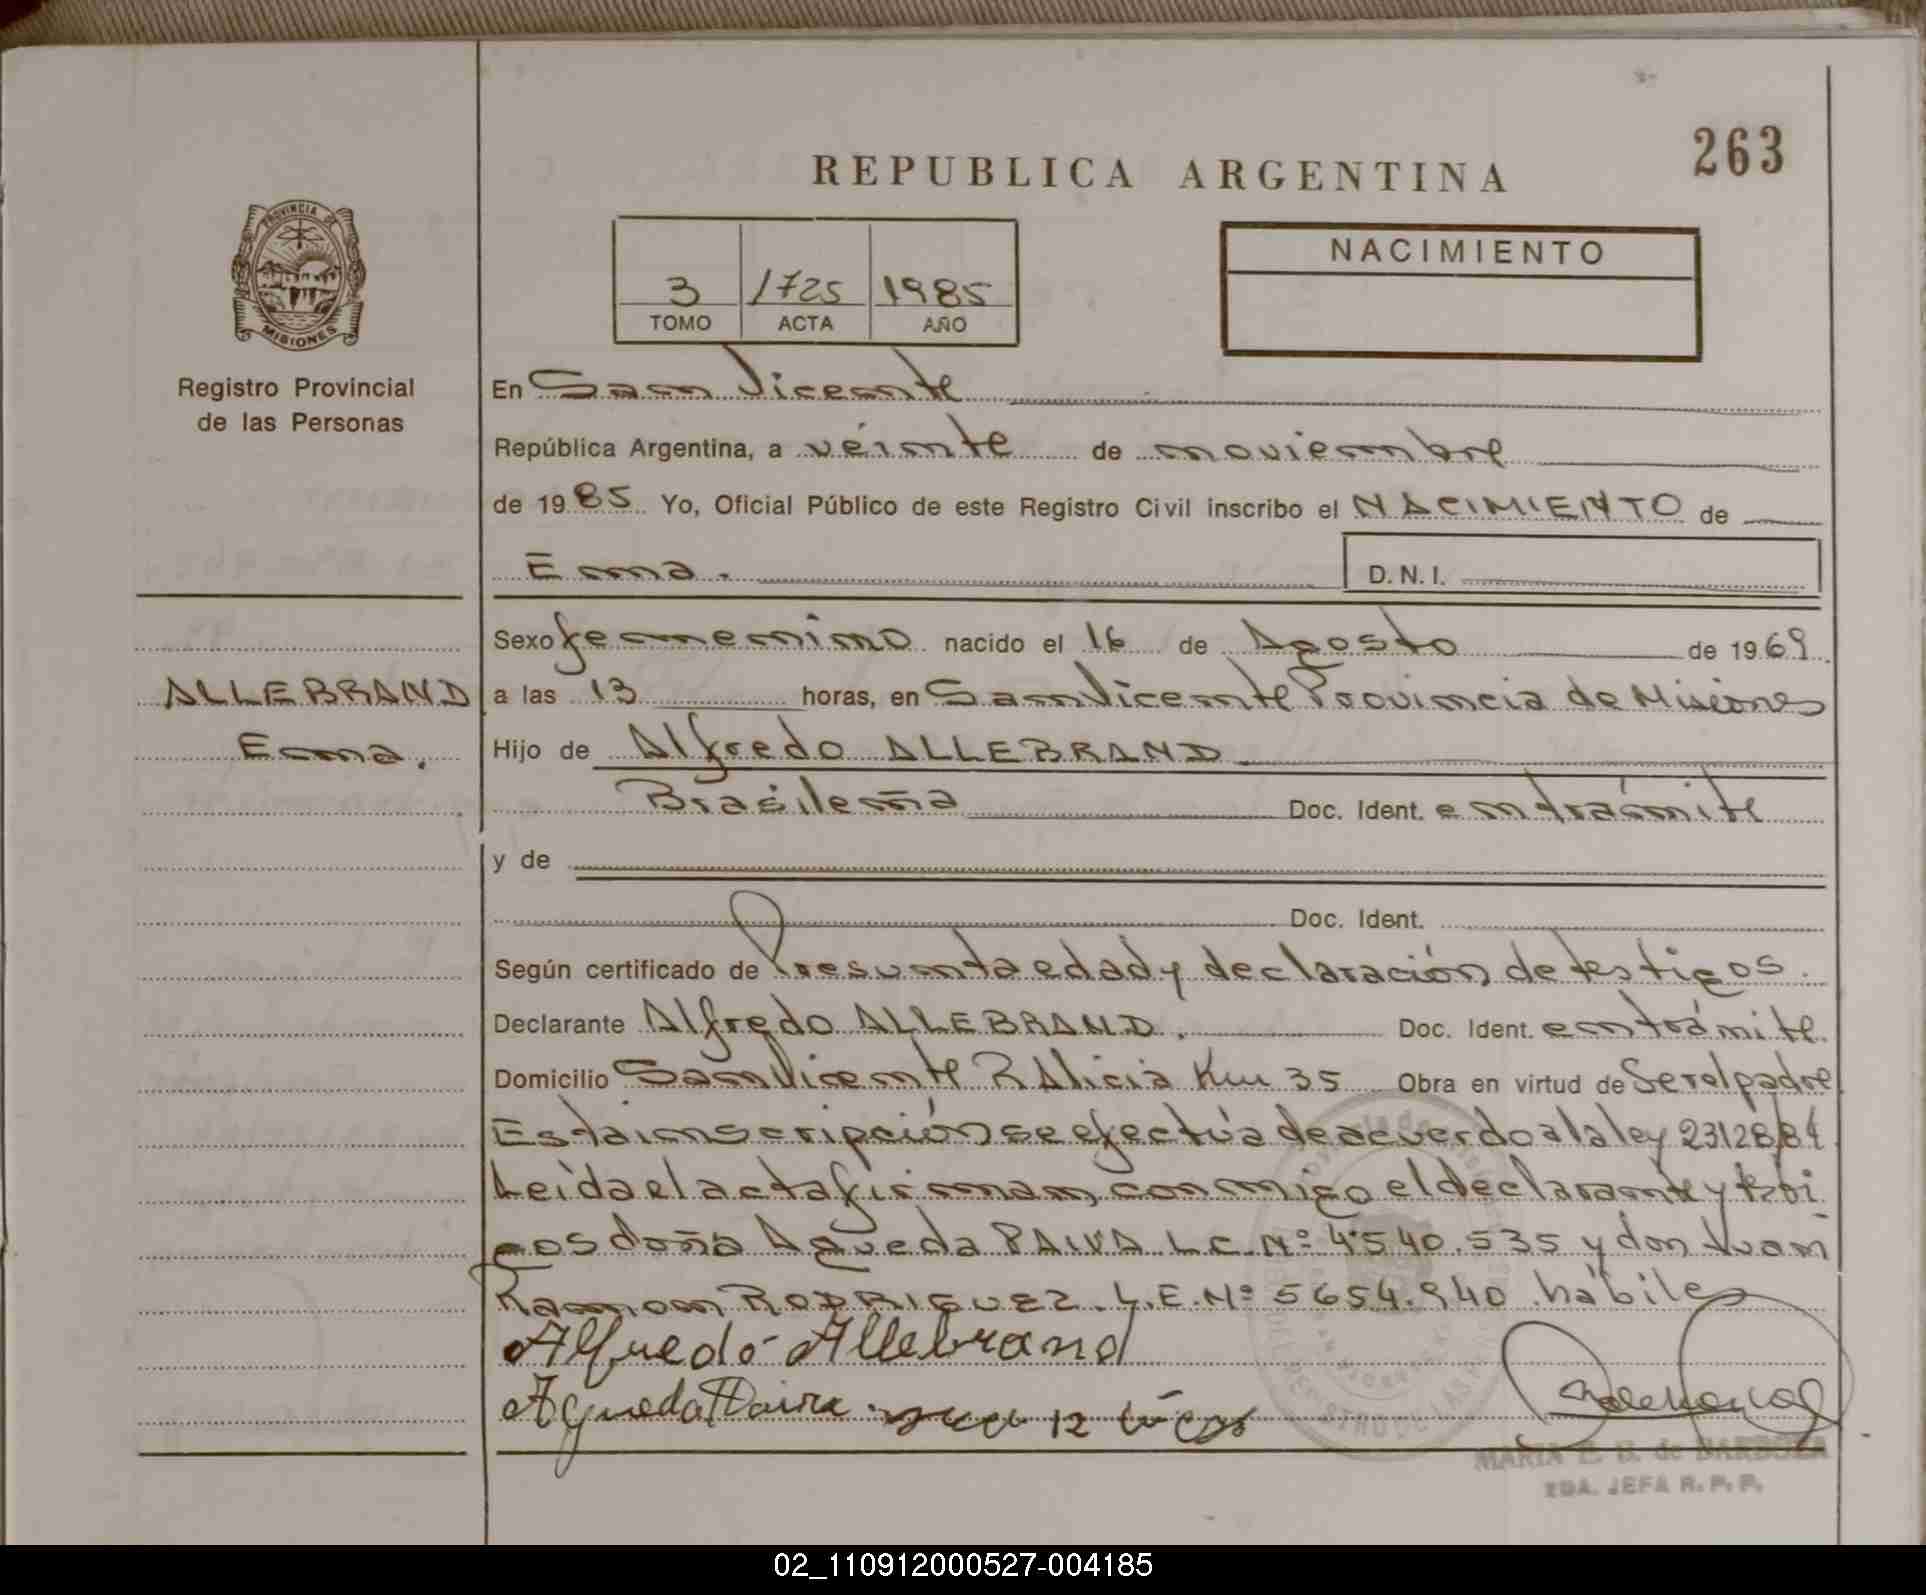 263
REPUBLICA ARGENTINA
PROVINCIA DE
MISIONES
Registro Provincial
de las Personas
3 1725 1985
TOMO ACTA AÑO
NACIMIENTO
En San Vicente
República Argentina, a véinte de noviembre
de 1985 Yo, Oficial Público de este Registro Civil inscribo el NACIMIENTO de
Ema. D.N.I.
Sexo femenino nacido el 16 de Agosto de 1969
ALLEBRAND
Ema.
a las 13 horas, en San Vicente Provincia de Misiones
Hijo de Alfredo ALLEBRAND
Brasileña Doc. Ident. en trámite
y de
Doc. Ident.
Según certificado de Presunta edad y declaración de testigos.
Declarante Alfredo ALLEBRAND. Doc. Ident. en trámite
Domicilio San Vicente R Alicia Km 35 Obra en virtud de Ser el padre
Esta inscripción se efectúa de acuerdo a la ley 23128/84
Leida el acta firman conmigo el declarante y testi
gos doña Agueda PAIVA L.C. Nº 4.540.535 y don Juan
Ramon RODRIGUEZ. L.E. Nº 5654.940 hábiles
Alfredo Allebrand
Agueda Paiva
MARIA E. B. de BARBOZA
2DA. JEFA R. P. P.
02_110912000527-004185